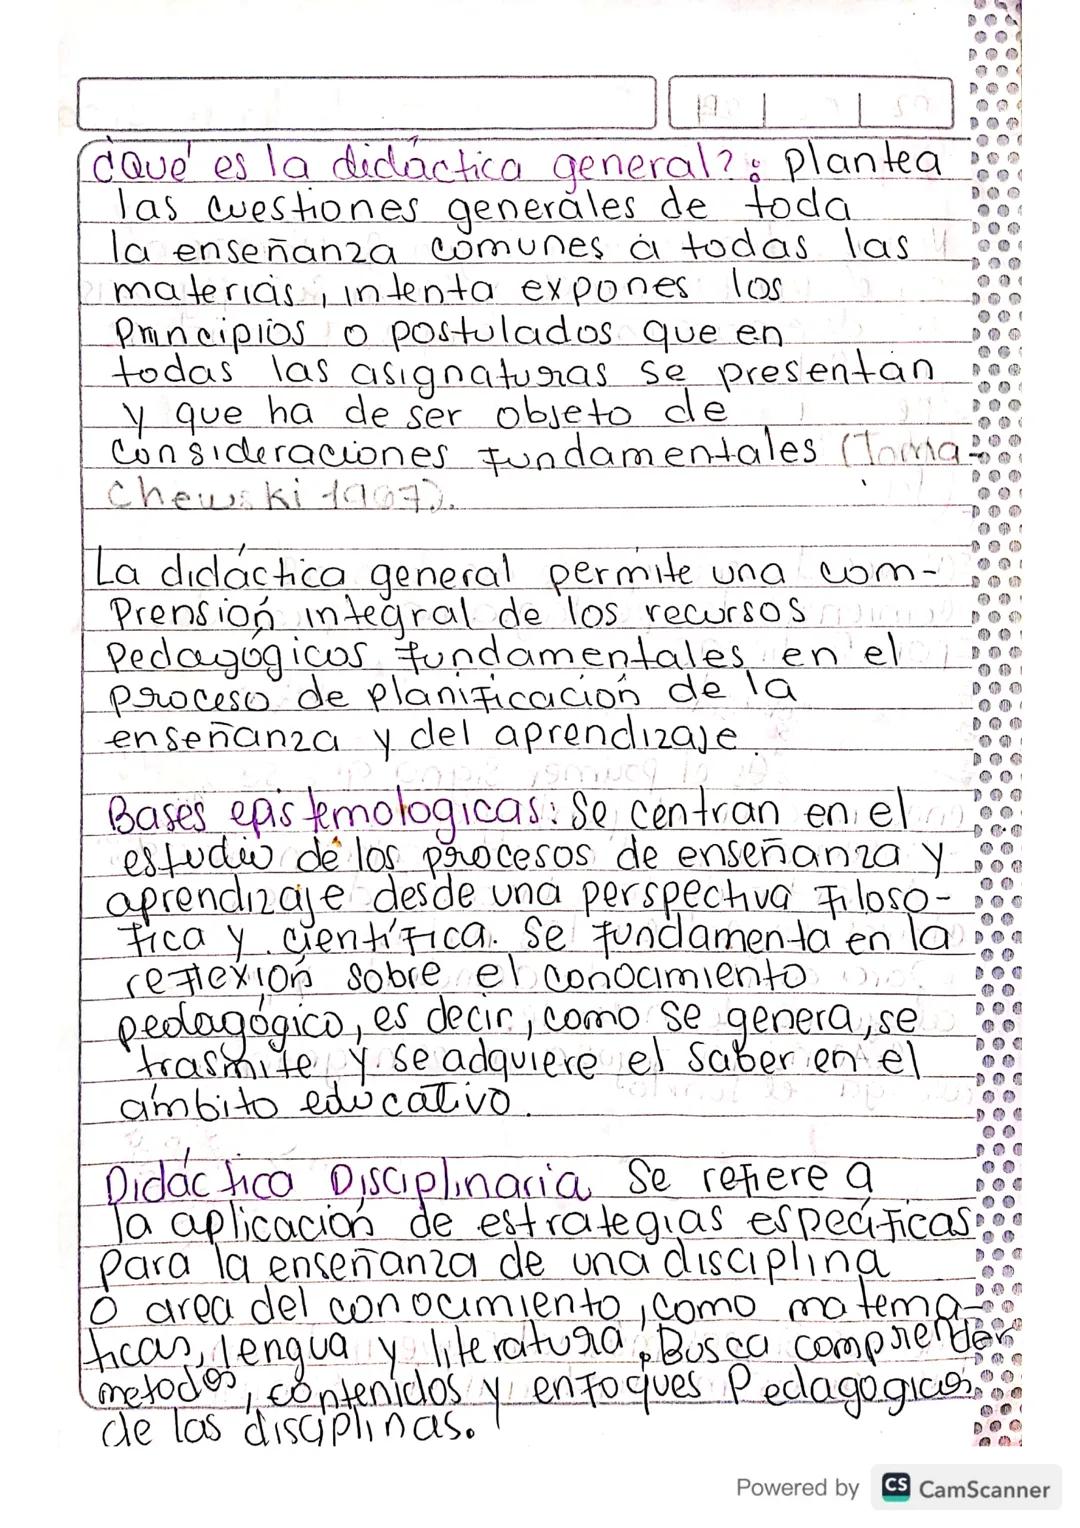 ¿Qué es la didáctica general?: plantea
las cuestiones generales de toda
la enseñanza comunes a todas las
materias, intenta expones los
Principios o postulados que en
todas las asignaturas se presentan
y que ha de ser objeto de
consideraciones fundamentales (Toma-
chewski 1997).
La didáctica general permite una com-
Prensión integral de los recursos
Pedagógicos fundamentales en el
proceso de planificación de la
enseñanza y del aprendizaje.
Bases epistemologicas: Se centran en el
estudio de los procesos de enseñanza y
aprendizaje desde una perspectiva Filoso-
fica y científica. Se fundamenta en la
reflexión sobre el conocimiento
pedagógico, es decir, como se genera, se
trasmite y se adquiere el saber en el
ámbito educativo.
Didáctica Disciplinaria Se refiere a
la aplicación de estrategias especificas
Para la enseñanza de una disciplina
o area del conocimiento, como matema-
ticas, lengua y literatura, Busca comprender
metodos, contenidos y enfoques Pedagogicos
de las disciplinas.
Powered by CS CamScanner